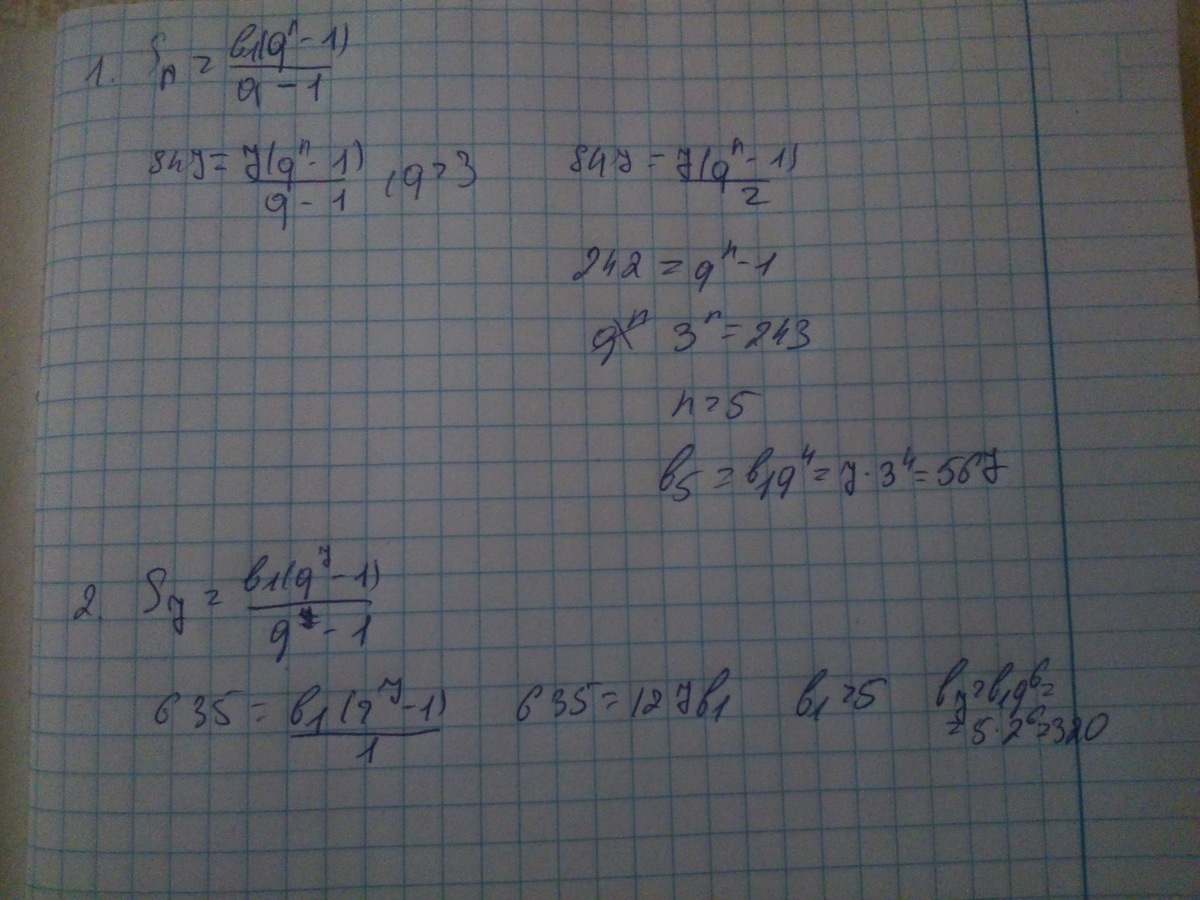 1. Sₙ = b₁(qⁿ - 1) / q - 1
847 = 7(qⁿ - 1) / q - 1 , q = 3
847 = 7(qⁿ - 1) / 2
242 = qⁿ - 1
3ⁿ = 243
n = 5
b₅ = b₁q⁴ = 7 · 3⁴ = 567
2. S₇ = b₁(q⁷ - 1) / q - 1
635 = b₁(2⁷ - 1) / 1
635 = 127b₁
b₁ = 5
b₇ = b₁q⁶ =
= 5 · 2⁶ = 320